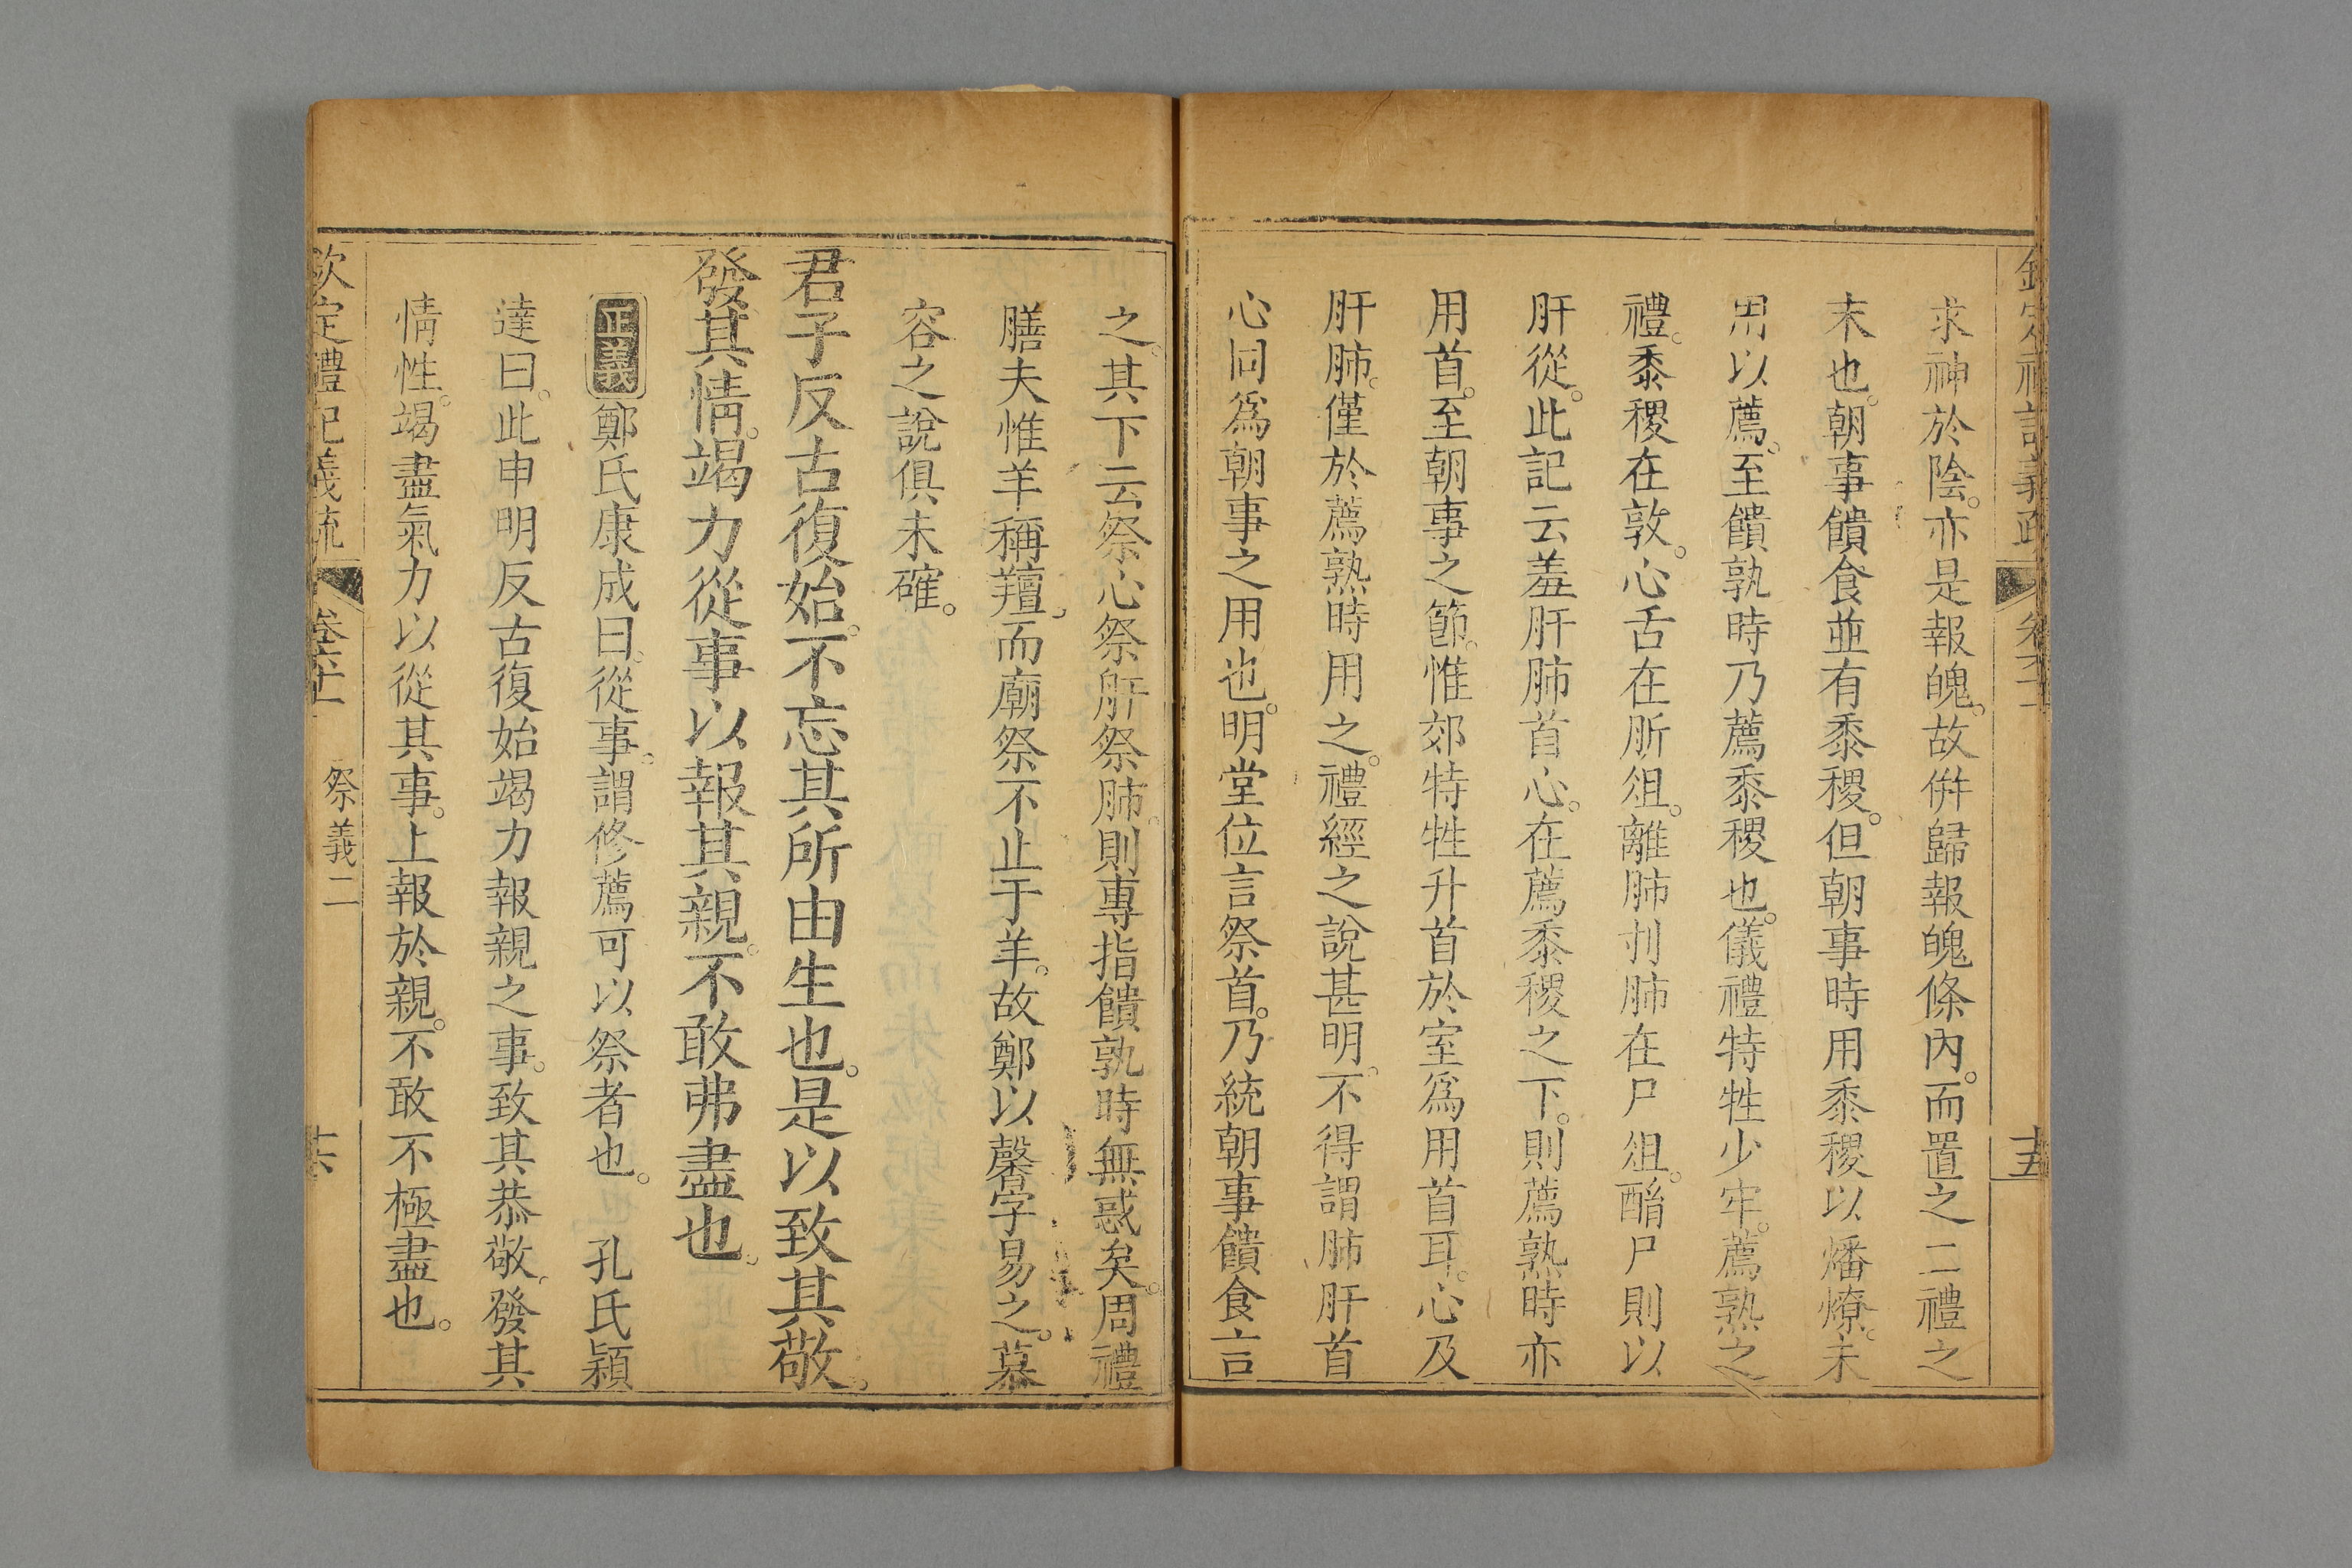 求神於陰。亦是報魄。故倂歸報魄條內。而置之二禮之
末也。朝事饋食並有黍稷。但朝事時用黍稷以燔燎。未
用以薦。至饋孰時乃薦黍稷也。儀禮特牲少牢。薦熟之
禮。黍稷在敦。心舌在肵俎。離肺刌肺在尸俎。酳尸則以
肝從。此記云羞肝肺首心。在薦黍稷之下。則薦熟時亦
用首。至朝事之節。惟郊特牲升首於室爲用首耳。心及
肝肺。僅於薦熟時用之。禮經之說甚明。不得謂肺肝首
心同爲朝事之用也。明堂位言祭首。乃統朝事饋食言
之。其下云祭心祭肝祭肺。則專指饋孰時無惑矣。周禮
膳夫惟羊稱羶。而廟祭不止于羊。故鄭以馨字易之。慕
容之說俱未確。
君子反古復始。不忘其所由生也。是以致其敬。
發其情。竭力從事以報其親。不敢弗盡也。
正義鄭氏康成曰。從事。謂修薦可以祭者也。 孔氏穎
達曰。此申明反古復始竭力報親之事。致其恭敬。發其
情性。竭盡氣力以從其事。上報於親。不敢不極盡也。
欽定禮記義疏 卷 祭義二